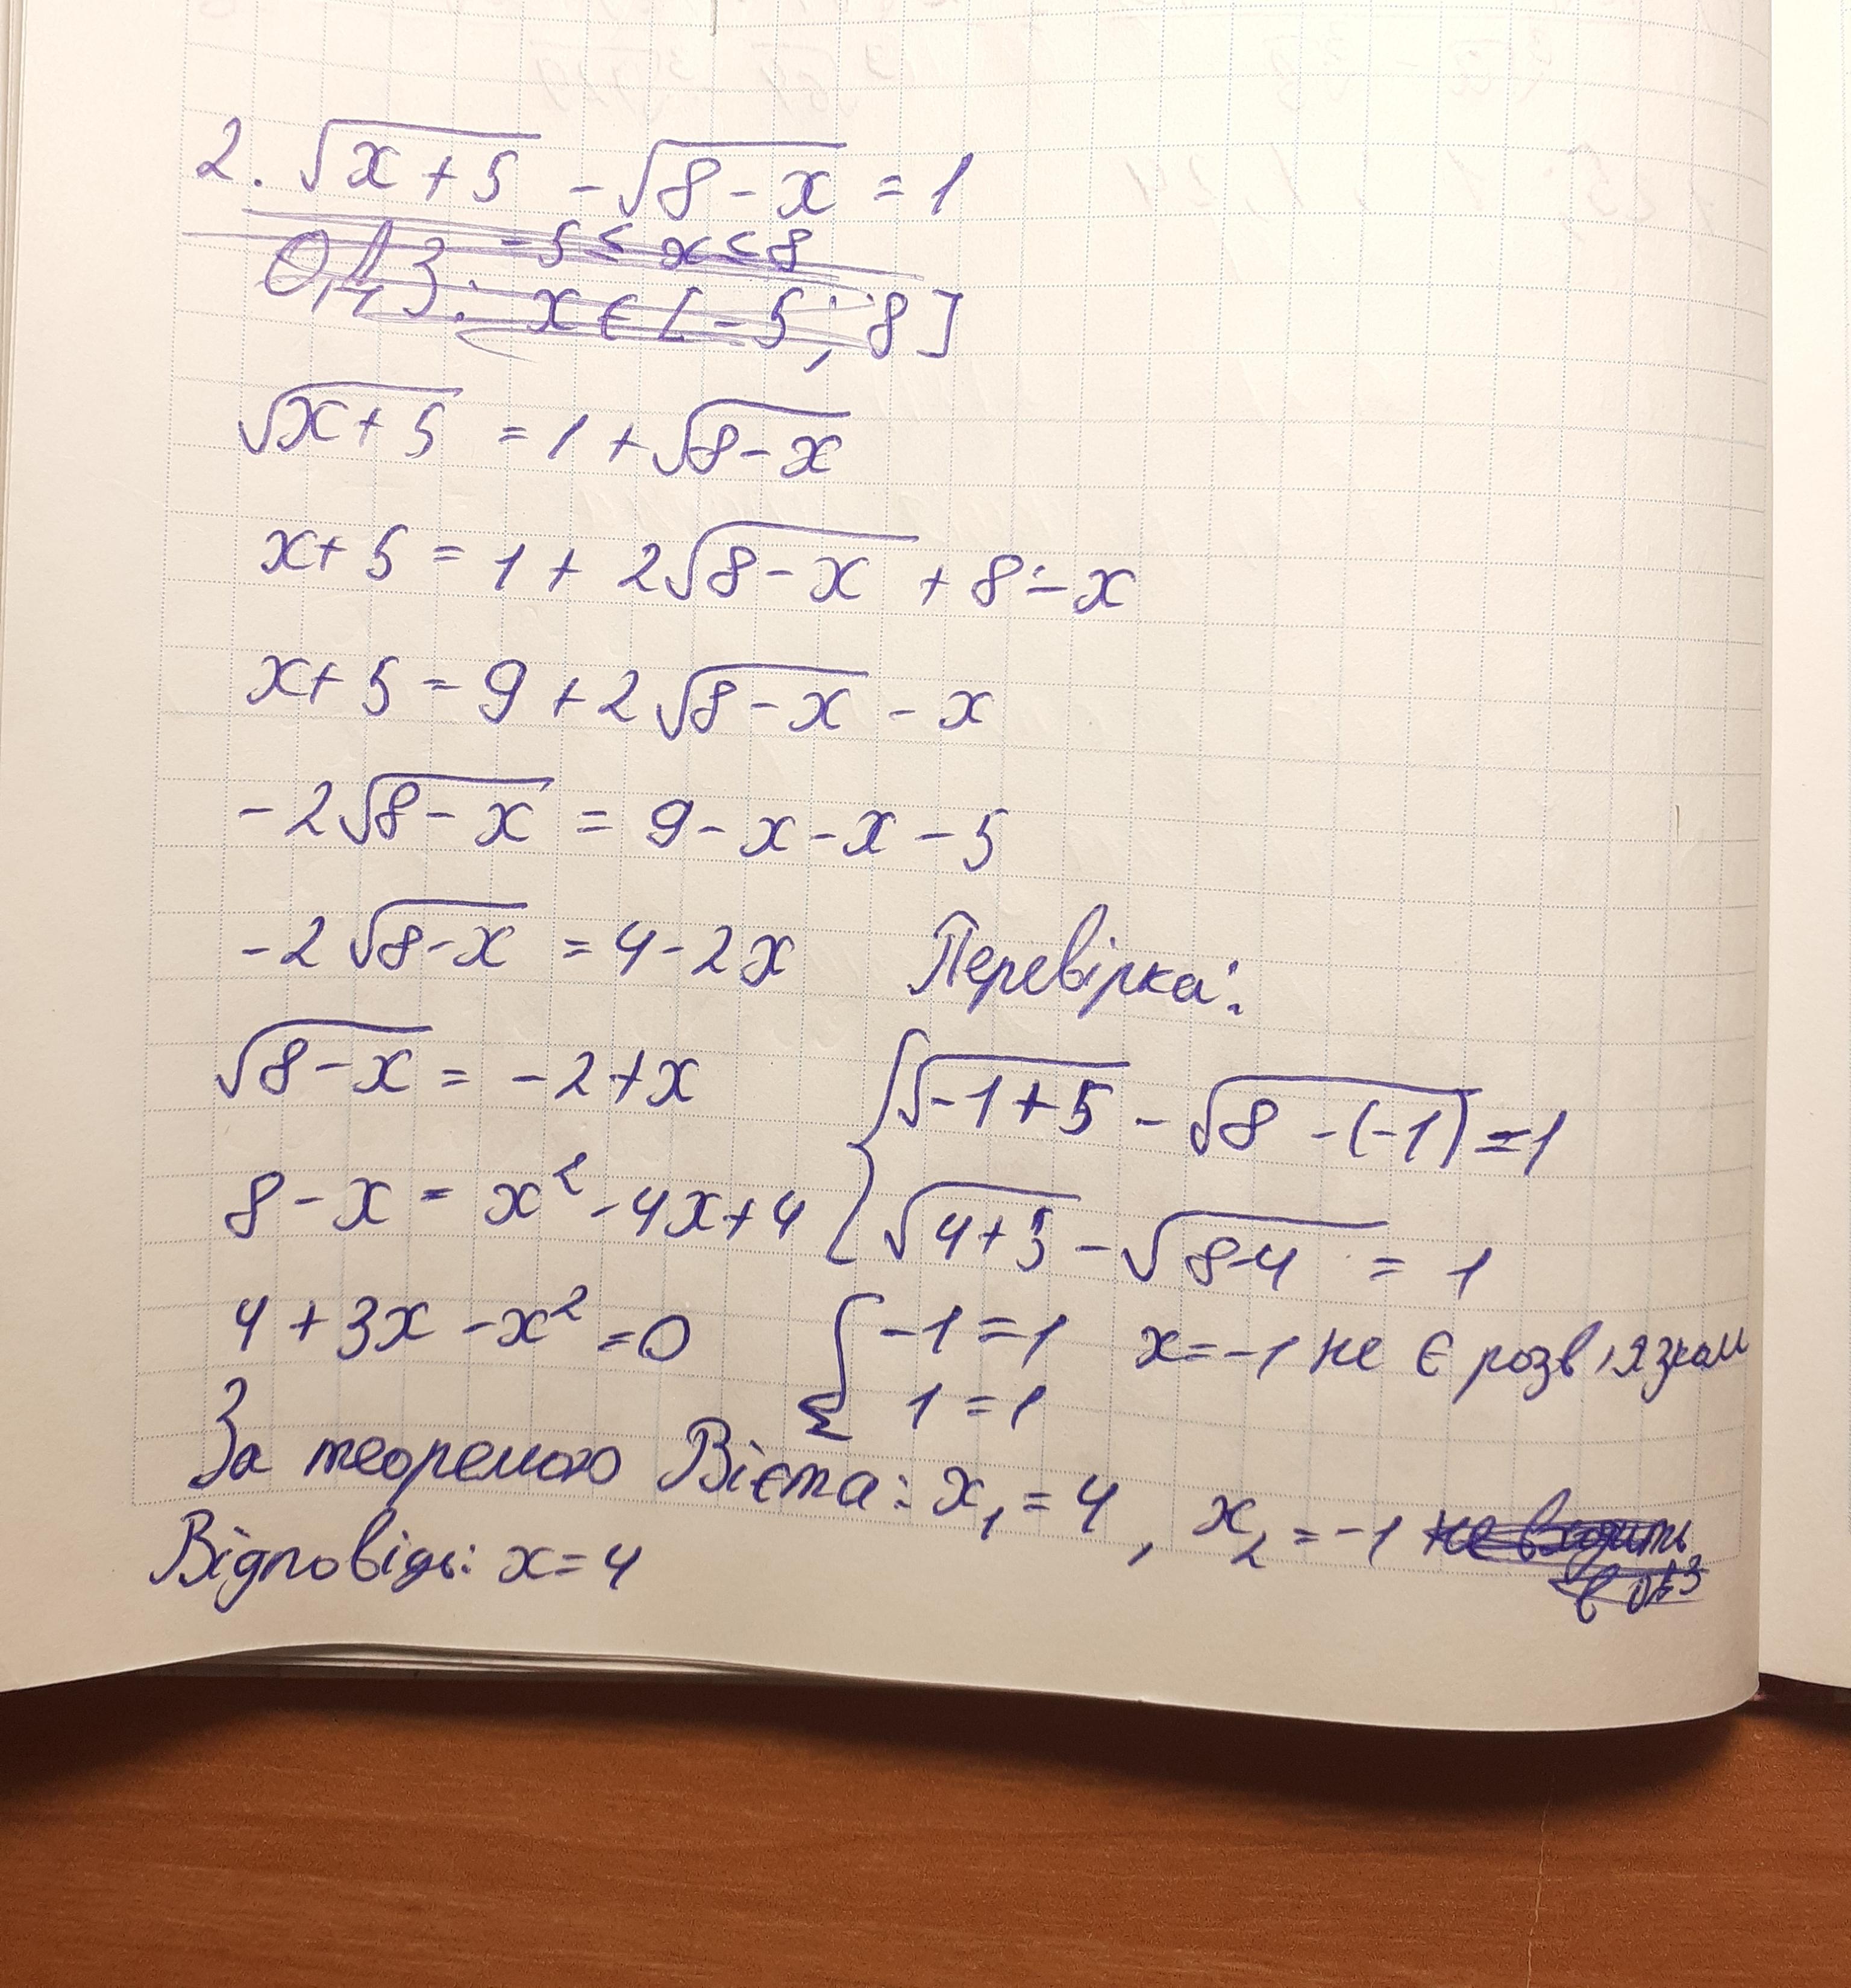 2. √x+5 - √8-x = 1
-5 ≤ x ≤ 8
ОДЗ: x ∈ [-5; 8]
√x+5 = 1 + √8-x
x+5 = 1 + 2√8-x + 8 - x
x+5 = 9 + 2√8-x - x
-2√8-x = 9 - x - x - 5
-2√8-x = 4 - 2x
√8-x = -2+x
8 - x = x² - 4x + 4
4 + 3x - x² = 0
Перевірка:
√-1+5 - √8-(-1) = 1
√4+5 - √8-4 = 1
-1 = 1 x = -1 не є розв'язком
1 = 1
За теоремою Вієта: x₁ = 4, x₂ = -1 не входить
в ОДЗ
Відповідь: x = 4